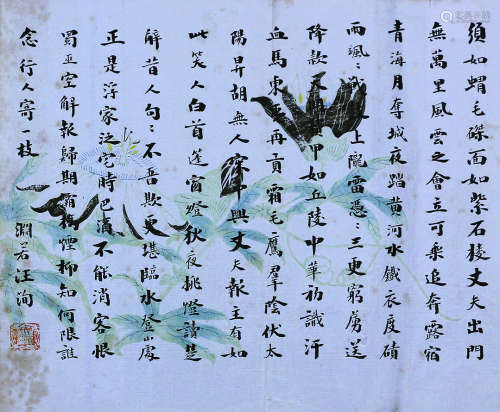 須如蝟毛磔面如紫石棱丈夫出門
無萬里風雲之會立可乘追奔露宿
青海月奪城夜踏黃河水鐵衣度磧
雨颯:上隴雷憑:三更窮虜送
降款天甲如丘陵中華初識汗
血馬東夷再貢霜毛鷹羣陰伏太
陽昇胡無人宋中興丈夫報主有如
此笑人白首篷窗燈秋夜挑燈讀楚
辭昔人句:不吾欺更堪臨水登山處
正是浮家泛宅時巴酒不能消客恨
蜀巫空解報歸期灞橋煙柳知何限誰
念行人寄一枝
淵若汪洵